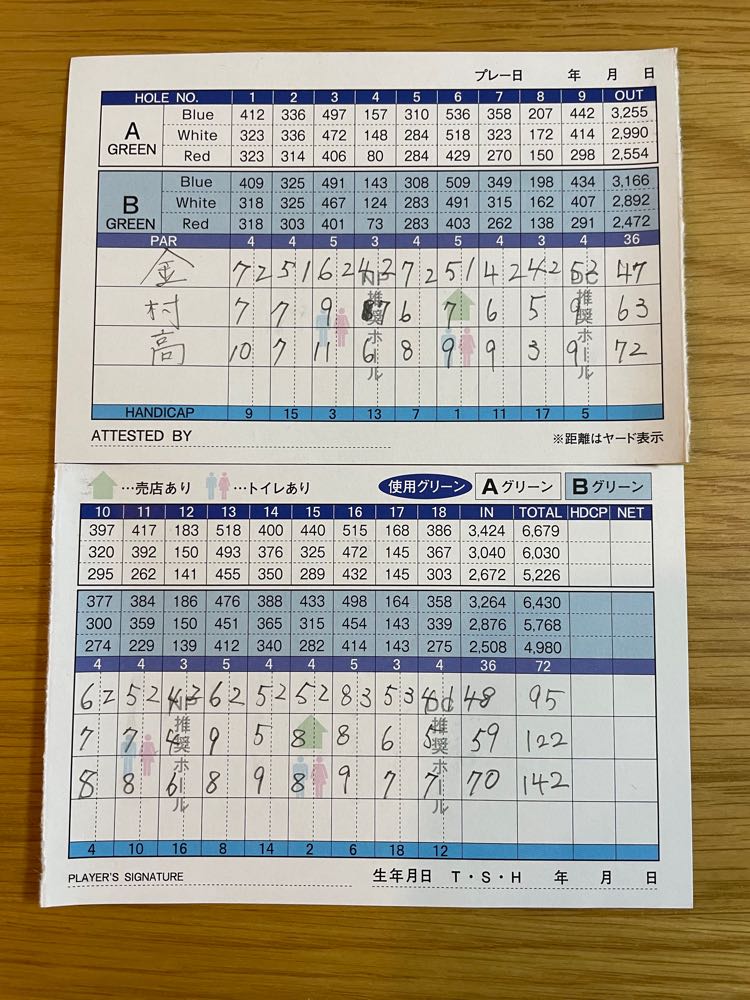 プレー日 年 月 日
HOLE NO. 1 2 3 4 5 6 7 8 9 OUT
A GREEN
Blue 412 336 497 157 310 536 358 207 442 3,255
White 323 336 472 148 284 518 323 172 414 2,990
Red 323 314 406 80 284 429 270 150 298 2,554
B GREEN
Blue 409 325 491 143 308 509 349 198 434 3,166
White 318 325 467 124 283 491 315 162 407 2,892
Red 318 303 401 73 283 403 262 138 291 2,472
PAR 4 4 5 3 4 5 4 3 4 36
金 7 2 5 1 6 2 4 2 7 2 5 1 4 2 4 2 5 2 47
村 7 7 9 7 6 7 6 5 9 63
高 10 7 11 6 8 9 9 3 9 72
NP推奨ホール
DC推奨ホール
HANDICAP 9 15 3 13 7 1 11 17 5
ATTESTED BY ※距離はヤード表示
…売店あり …トイレあり 使用グリーン Aグリーン Bグリーン
10 11 12 13 14 15 16 17 18 IN TOTAL HDCP NET
397 417 183 518 400 440 515 168 386 3,424 6,679
320 392 150 493 376 325 472 145 367 3,040 6,030
295 262 141 455 350 289 432 145 303 2,672 5,226
377 384 186 476 388 433 498 164 358 3,264 6,430
300 359 150 451 365 315 454 143 339 2,876 5,768
274 229 139 412 340 282 414 143 275 2,508 4,980
4 4 3 5 4 4 5 3 4 36 72
6 2 5 2 4 2 6 2 5 2 5 2 8 3 5 3 4 1 48 95
7 7 4 9 5 8 8 6 5 59 122
8 8 6 8 9 8 9 7 7 70 142
NP推奨ホール
DC推奨ホール
4 10 16 8 14 2 6 18 12
PLAYER'S SIGNATURE 生年月日 T・S・H 年 月 日